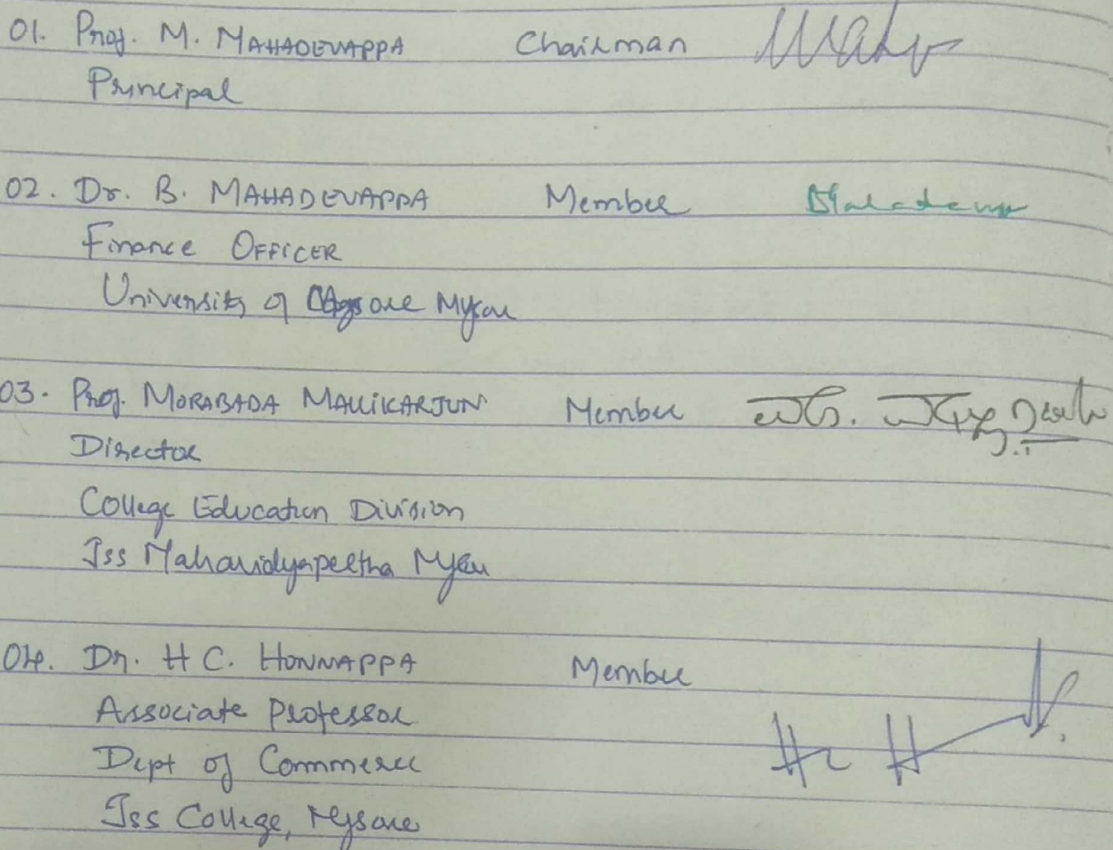 01. Prof. M. MAHADEVAPPA Chairman
Principal
02. Dr. B. MAHADEVAPPA Member
Finance OFFICER
University of Mysore Mysore
03. Prof. MORABADA MALLIKARJUN Member
Director
College Education Division
Jss Mahavidyapeetha Mysore
04. Dr. H C. HONNAPPA Member
Associate Professor
Dept of Commerce
Jss College, Mysore